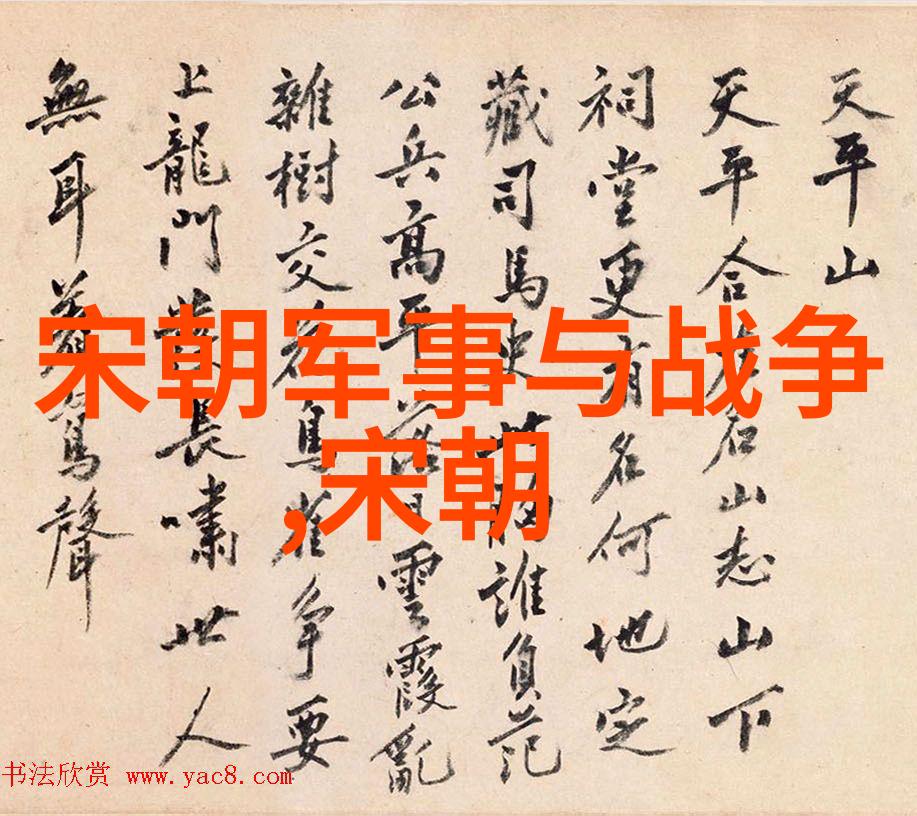 天平山
天平合名山志山下
祠堂更有名何地定
藏司馬史世誰負范
公兵高平落日雲霞亂
雜樹交花鳥雀争要
上龍門發長嘯世人
無耳着鸞聲
宋朝军事与战争
,宋朝
书法欣赏 www.yac8.com